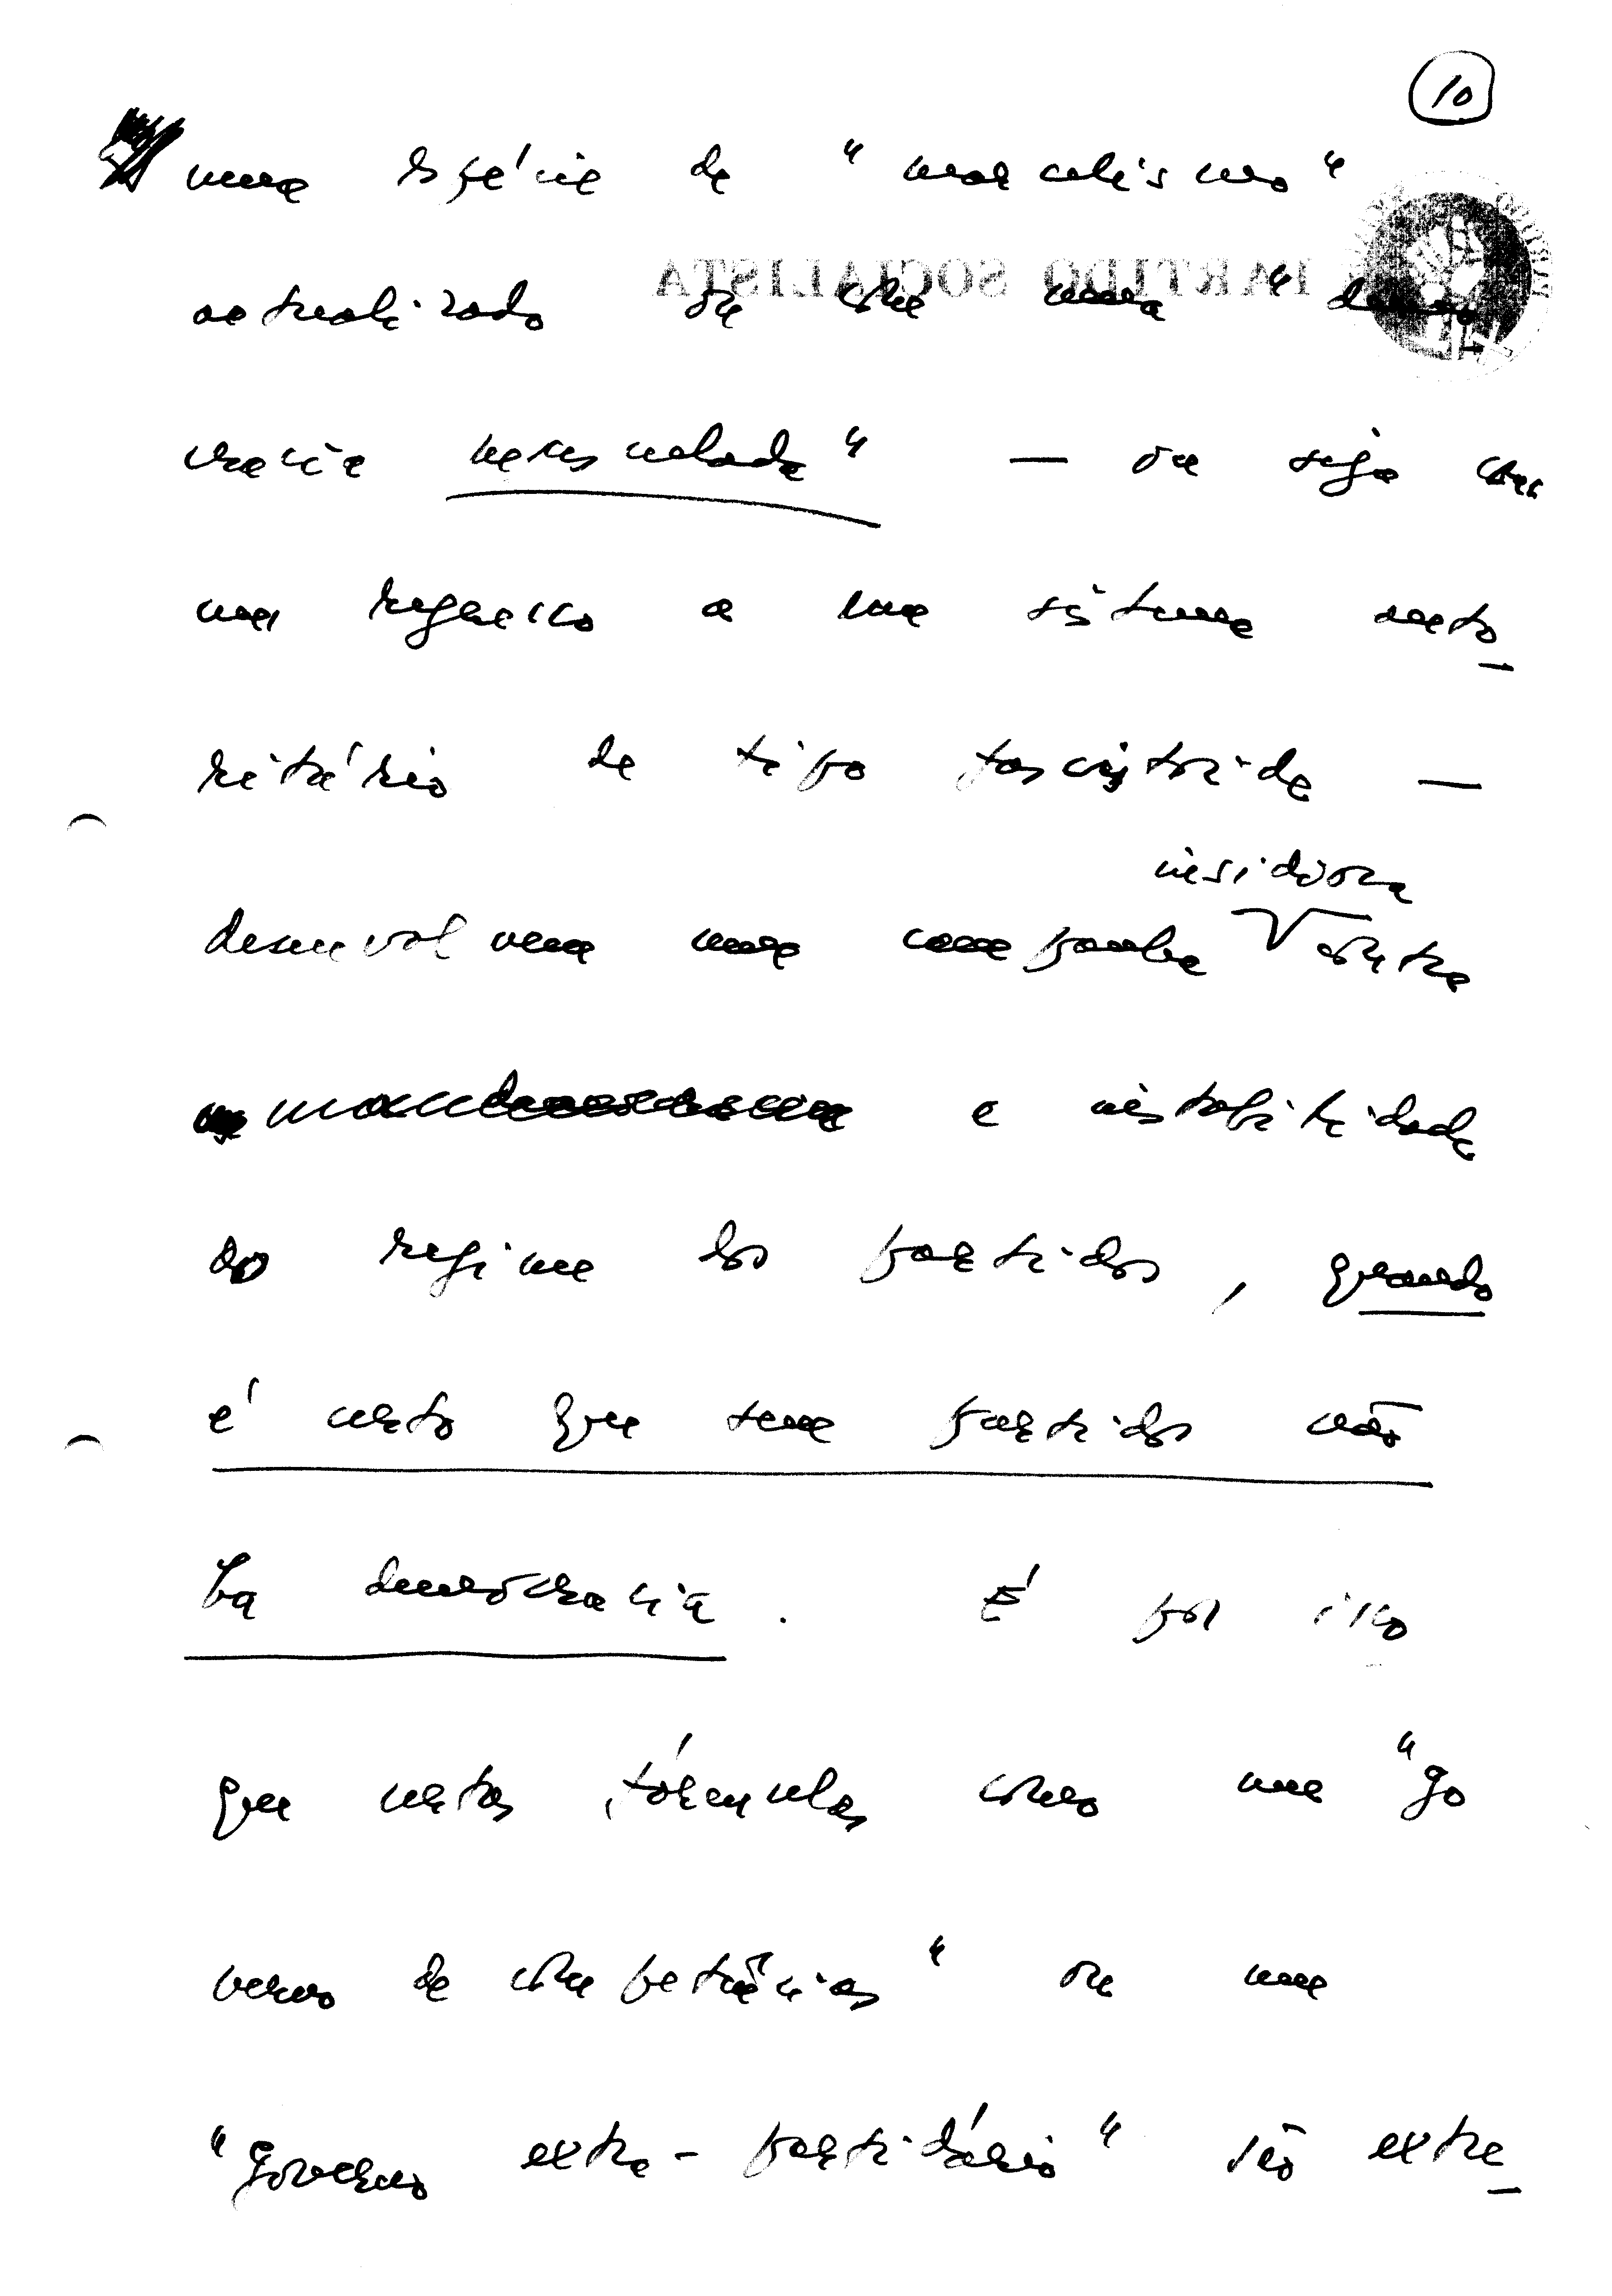 10
uma espécie de "marcelismo"
PARTIDO SOCIALISTA
actualizado ou com uma "demo
cracia musculada" — ou seja com
um regresso a um sistema auto-
ritário de tipo fascistoide —
insidiosa
desenvolvem uma campanha contra
a instabilidade
do regime dos partidos, quando
é certo que sem partidos não
há democracia. É por isso
que certas fórmulas como um "go
verno de competências" ou um
"Governo extra-partidário" são extre-